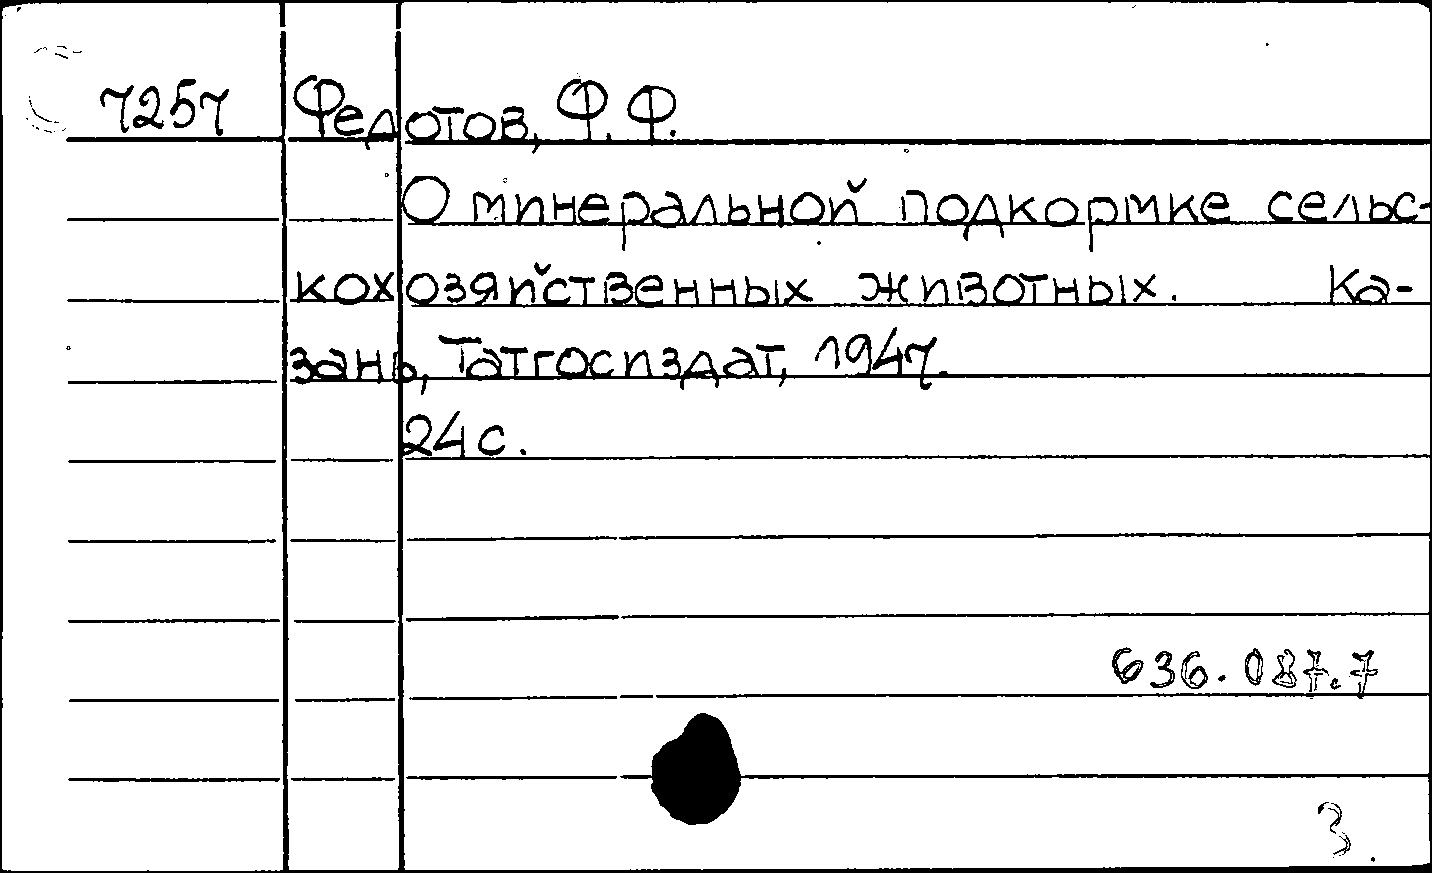 7257 Федотов, Ф. Ф.
О минеральной подкормке сельс-
кохозяйственных животных. Ка-
зань, Татгосиздат, 1947.
24 с.
636.087.7
3.